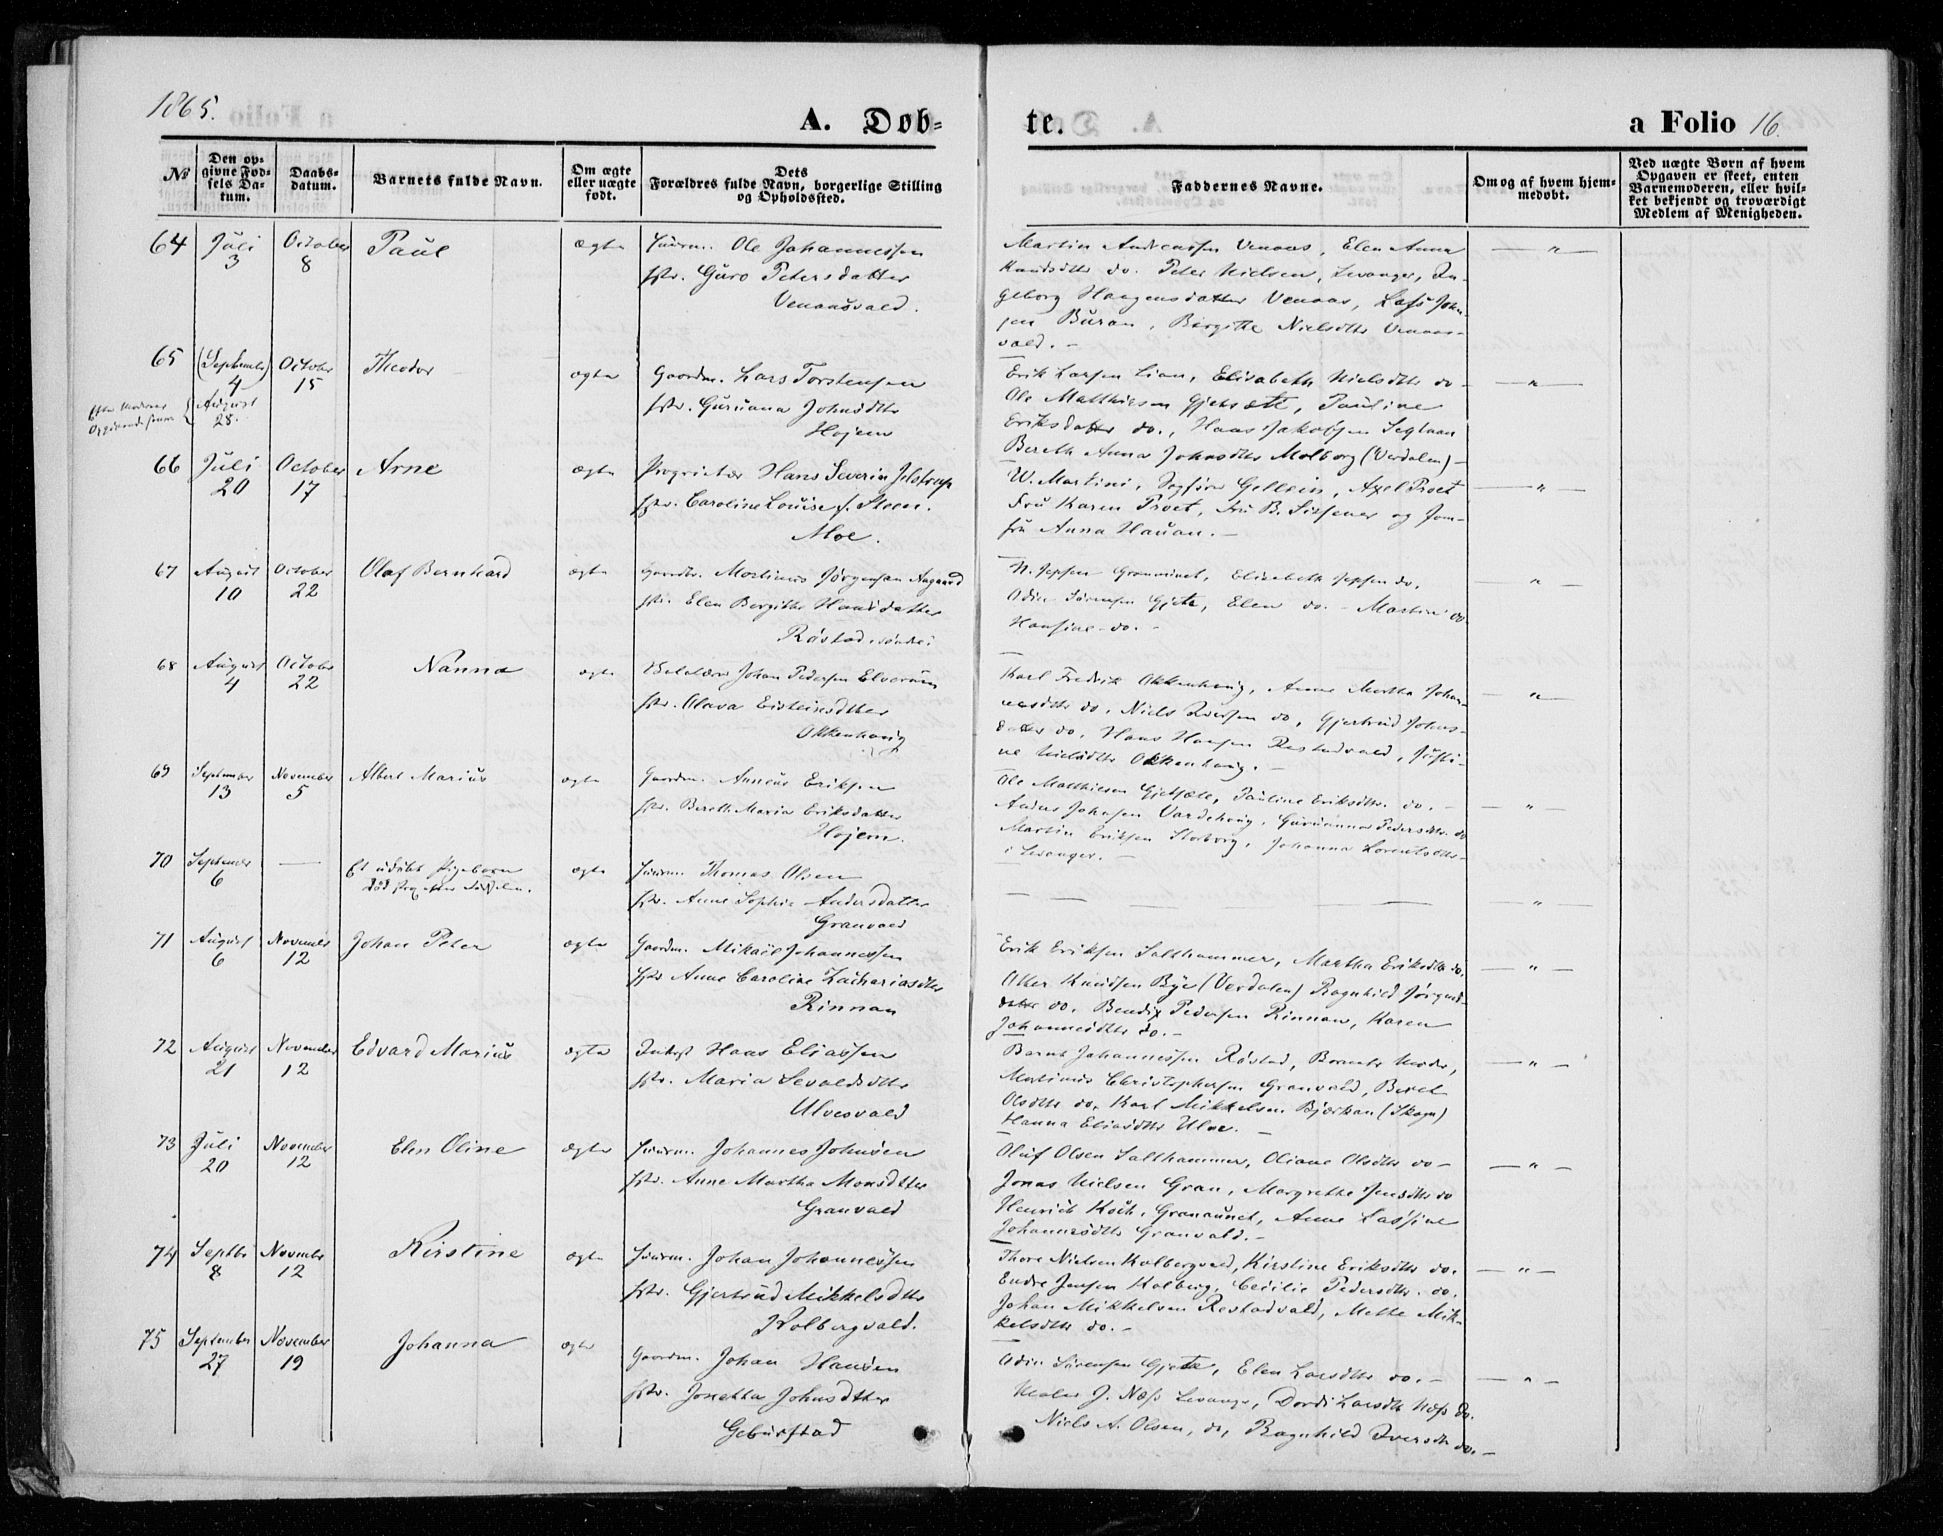 1865.
A. Døb-
te.
a Folio 16.
No
Den op-
givne Fød-
sels Da-
tum.
Daabs-
datum.
Barnets fulde Navn.
Om ægte
eller uægte
født.
Dets
Forældres fulde Navn, borgerlige Stilling
og Opholdssted.
Faddernes Navne.
Om og af hvem hjem-
medøbt.
Ved uægte Børn af hvem
Opgaven er skeet, enten
Barnemoderen, eller hvil-
ket bekjendt og troværdigt
Medlem af Menigheden.
64 Juli 3 October 8 Paul ægte Huusm. Ole Johannessen
Hstr. Guro Petersdatter
Venaasvald.
Martin Andreassen Venaas, Elen Anna
Knudsdtr do. Peter Nielsen, Levanger, In-
geborg Haagensdatter Venaas, Lass John-
sen Buran, Birgitte Nielsdtr Venaas-
vald. -
65 (September) 4 October 15 Theodor ægte Gaardm. Lars Torstensen
Efter Moderens Opgivende
August 28.
Hstr. Guruana Johnsdtr
Hojem
Erik Larsen Lian, Elisabeth Nielsdtr do -
Ole Matthiesen Gjetsæte, Pauline
Eriksdatter do., Hans Jakobsen Seglaan
Bereth Anna Johnsdtr Molborg (Verdalen) -
66 Juli 20 October 17 Arne ægte Proprietær Hans Severin Jelstrup
Hstr. Caroline Louise f. Steen.
Moe.
W. Martini, Sagfører Gellein, Axel Proet
Fru Karen Proet, Fru B. Lissener og Jom-
fru Anna Hauan. -
67 August 10 October 22 Olaf Bernhard ægte Gaardbr. Martinus Jørgensen Aagaard
Hstr. Elen Bergitte Hansdatter
Røstad, søndre
N. Jepsen Granaunet, Elisabeth Jepsen do.
Odin Sørensen Gjete, Elen do. - Martin do
Hansine do. -
68 August 4 October 22 Nanna ægte Johan Pedersen Elverum
Hstr. Olava Eisteinsdtter
Okkenhaug
Karl Fredrik Okkenhaug, Anne Martha Johan-
nesdtr do, Niels Iversen do, Gjertrud Johns-
datter do, Hans Hansen Restadvald, Justi-
ne Nielsdtr Okkenhaug. -
69 September 13 November 5 Albert Marius ægte Gaardm. Anneus Eriksen
Hstr. Bereth Maria Eriksdatter
Hojem.
Ole Matthiesen Gjetsæte, Pauline Eriksdtr. do. -
Anders Johnsen Vardehaug, Guruanna Pedersdtr. do
Martin Eriksen Storborg, Johanna Lorentsdtr -
i Levanger. -
70 September 6 Et udøbt Pigebarn ægte Huusm. Thomas Olsen
død strax efter Fødselen.
Hstr. Anne Sophie Andersdatter
Granvald
71 August 6 November 12 Johan Peter ægte Gaardm. Mikael Johannessen
Hstr Anne Caroline Zachariasdtr
Rinnan
Erik Eriksen Salthammer, Martha Eriksdtr do.
Oker Knudsen Bye (Verdalen) Ragnhild Jørgens-
datter do. Bendix Pedersen Rinnan, Karen
Johannesdtr do. -
72 August 21 November 12 Edvard Marius ægte Inderst Hans Eliassen
Hstr. Maria Sevaldsdtr
Ulvesvald
Bernt Johannessen Røstad, Barnets Moder,
Martinus Christophersen Granvald, Beret
Olsdtr do, Karl Mikkelsen Bjærkan (Skogn)
Hanna Eliasdtr Ulve. -
73 Juli 20 November 12 Elen Oline ægte Huusm. Johannes Johnsen
Hstr. Anne Martha Monsdtter
Granvald
Oluf Olsen Salthammer, Oliane Olsdtr do -
Jonas Nielsen Gran, Margrethe Jensdtr do
Henrich Koch, Granaunet, Anne Lassine
Johannesdtr Granvald. -
74 Septbr 8 November 12 Kirstine ægte Huusm. Johan Johannessen
Hstr. Gjertrud Mikkelsdtr
Holbergvald.
Thore Nielsen Holbergvald, Kirstine Eriksdtr do.
Endre Jensen Holberg, Cecilie Pedersdtr. do.
Johan Mikkelsen Restadvald, Mette Mik-
kelsdtr do. -
75 September 27 November 19 Johanna ægte Gaardm. Johan Hansen
Hstr. Jonetta Johnsdtter
Geburstad
Odin Sørensen Gjete, Elen Larsdtr do. -
Maler J. Næss Levanger, Dordi Larsdtr Næss do.
Niels A. Olsen, do, Ragnhild Iversdtr do. -